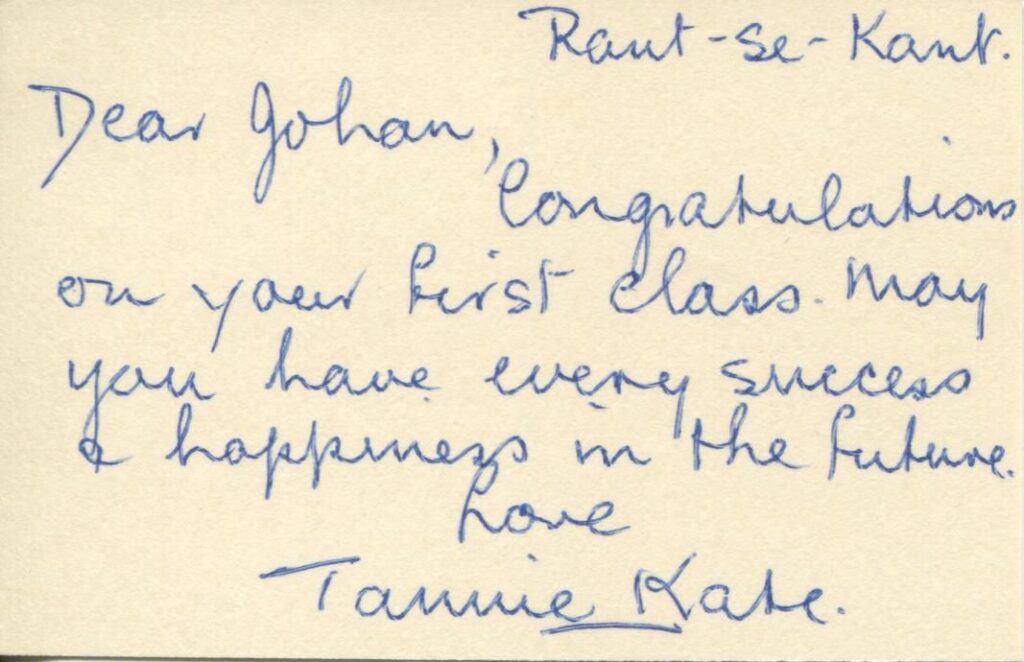 Rant-se-Kant.
Dear Johan,
Congratulations
on your first class. May
you have every success
& happiness in the future.
Love
Tannie Kate.